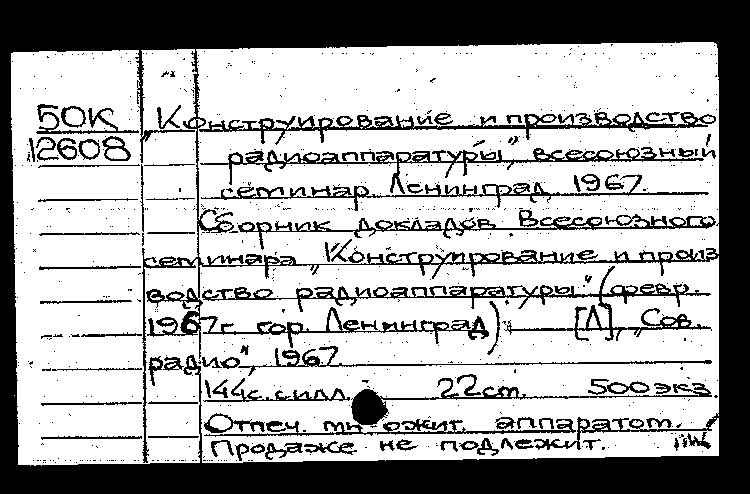 50К „Конструирование и производство
12608 радиоаппаратуры", всесоюзный
семинар. Ленинград, 1967.
Сборник докладов Всесоюзного
семинара „Конструирование и произ
водство радиоаппаратуры" (февр.
1967г. гор. Ленинград) [Л], „Сов.
радио", 1967.
144с. с илл. 22 ст. 500 экз.
Отпеч. мн ожит. аппаратом.
Продаже не подлежит.